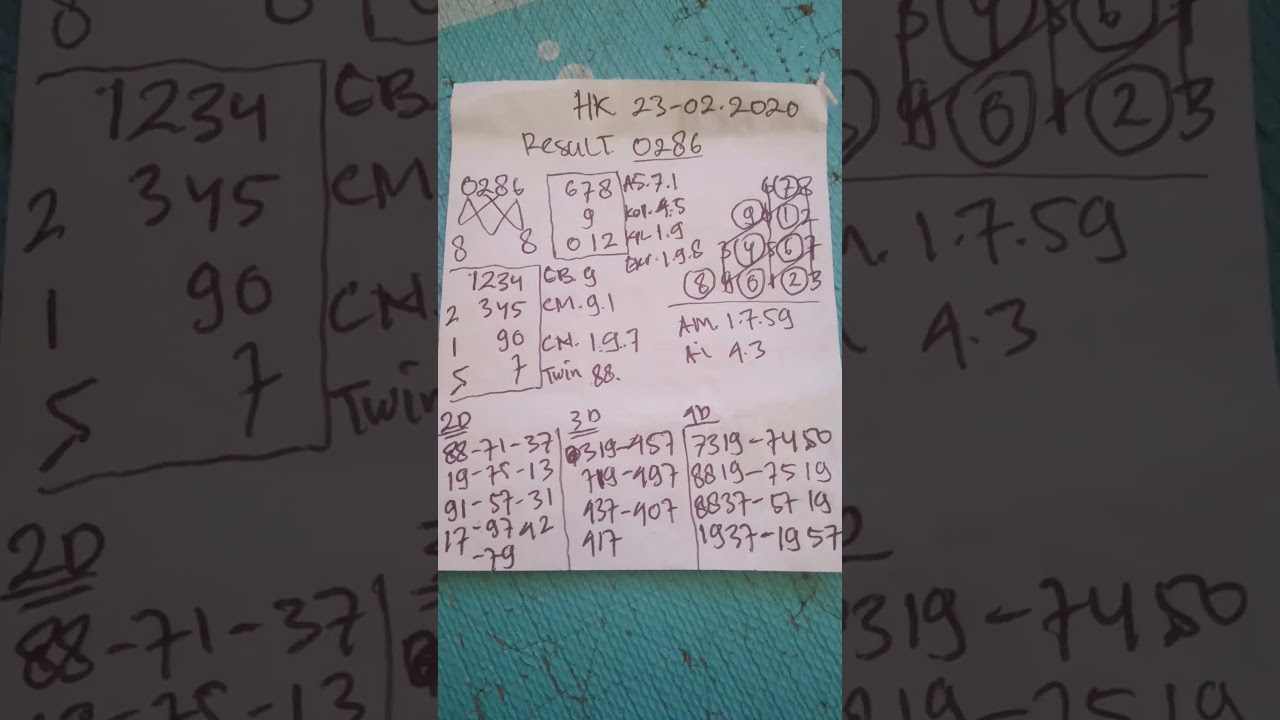 HK 23-02.2020
Result. 0286
0286
8 8
678
9
012
AS.7.1
Kop.4.5
KPL.1.9
Ekr.1.9.8
6 7 8
9 0 1 2
3 4 5 6 7
8 9 0 1 2 3
1234
2 345
1 90
5 7
CB 9
CM.9.1
CN. 1.9.7
Twin 88.
AM. 1.7.59
Ai 4.3
2D
88-71-37
19-75-13
91-57-31
17-97 42
-79
3D
319-457
719-497
437-407
417
4D
7319-7450
8819-7519
8837-5719
1937-1957